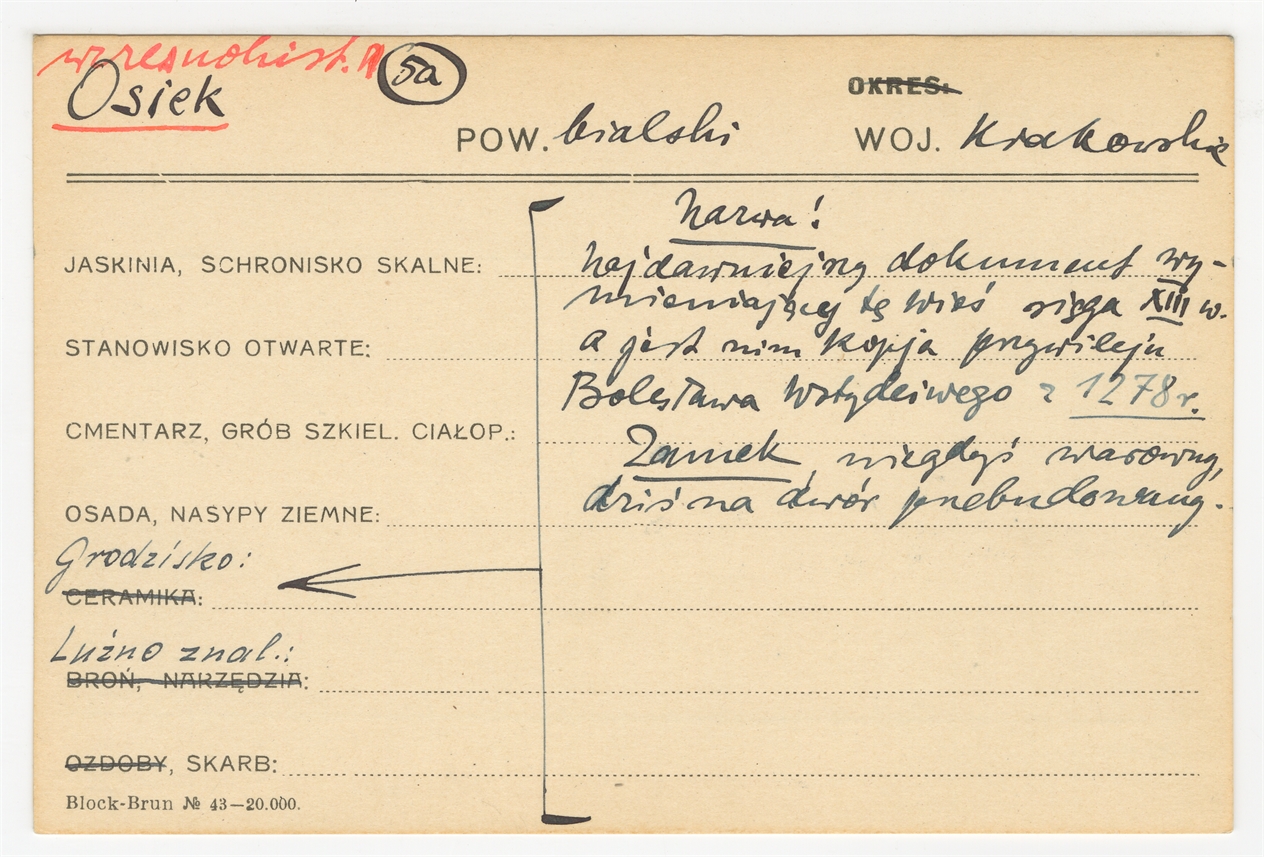 wczesnohist.
Osiek
5a
OKRES:
POW. bialski WOJ. Krakowskie
Nazwa!
JASKINIA, SCHRONISKO SKALNE:
Najdawniejszy dokument wy-
mieniający tę wieś sięga XIII w.
STANOWISKO OTWARTE:
a jest nim kopja przywileju
Bolesława Wstydliwego z 1278 r.
CMENTARZ, GRÓB SZKIEL. CIAŁOP.:
Zamek, niegdyś warowny,
OSADA, NASYPY ZIEMNE:
dziś na dwór przebudowany.
Grodzisko:
CERAMIKA:
Luźno znal.:
BROŃ, NARZĘDZIA:
OZDOBY, SKARB:
Block-Brun № 43—20.000.